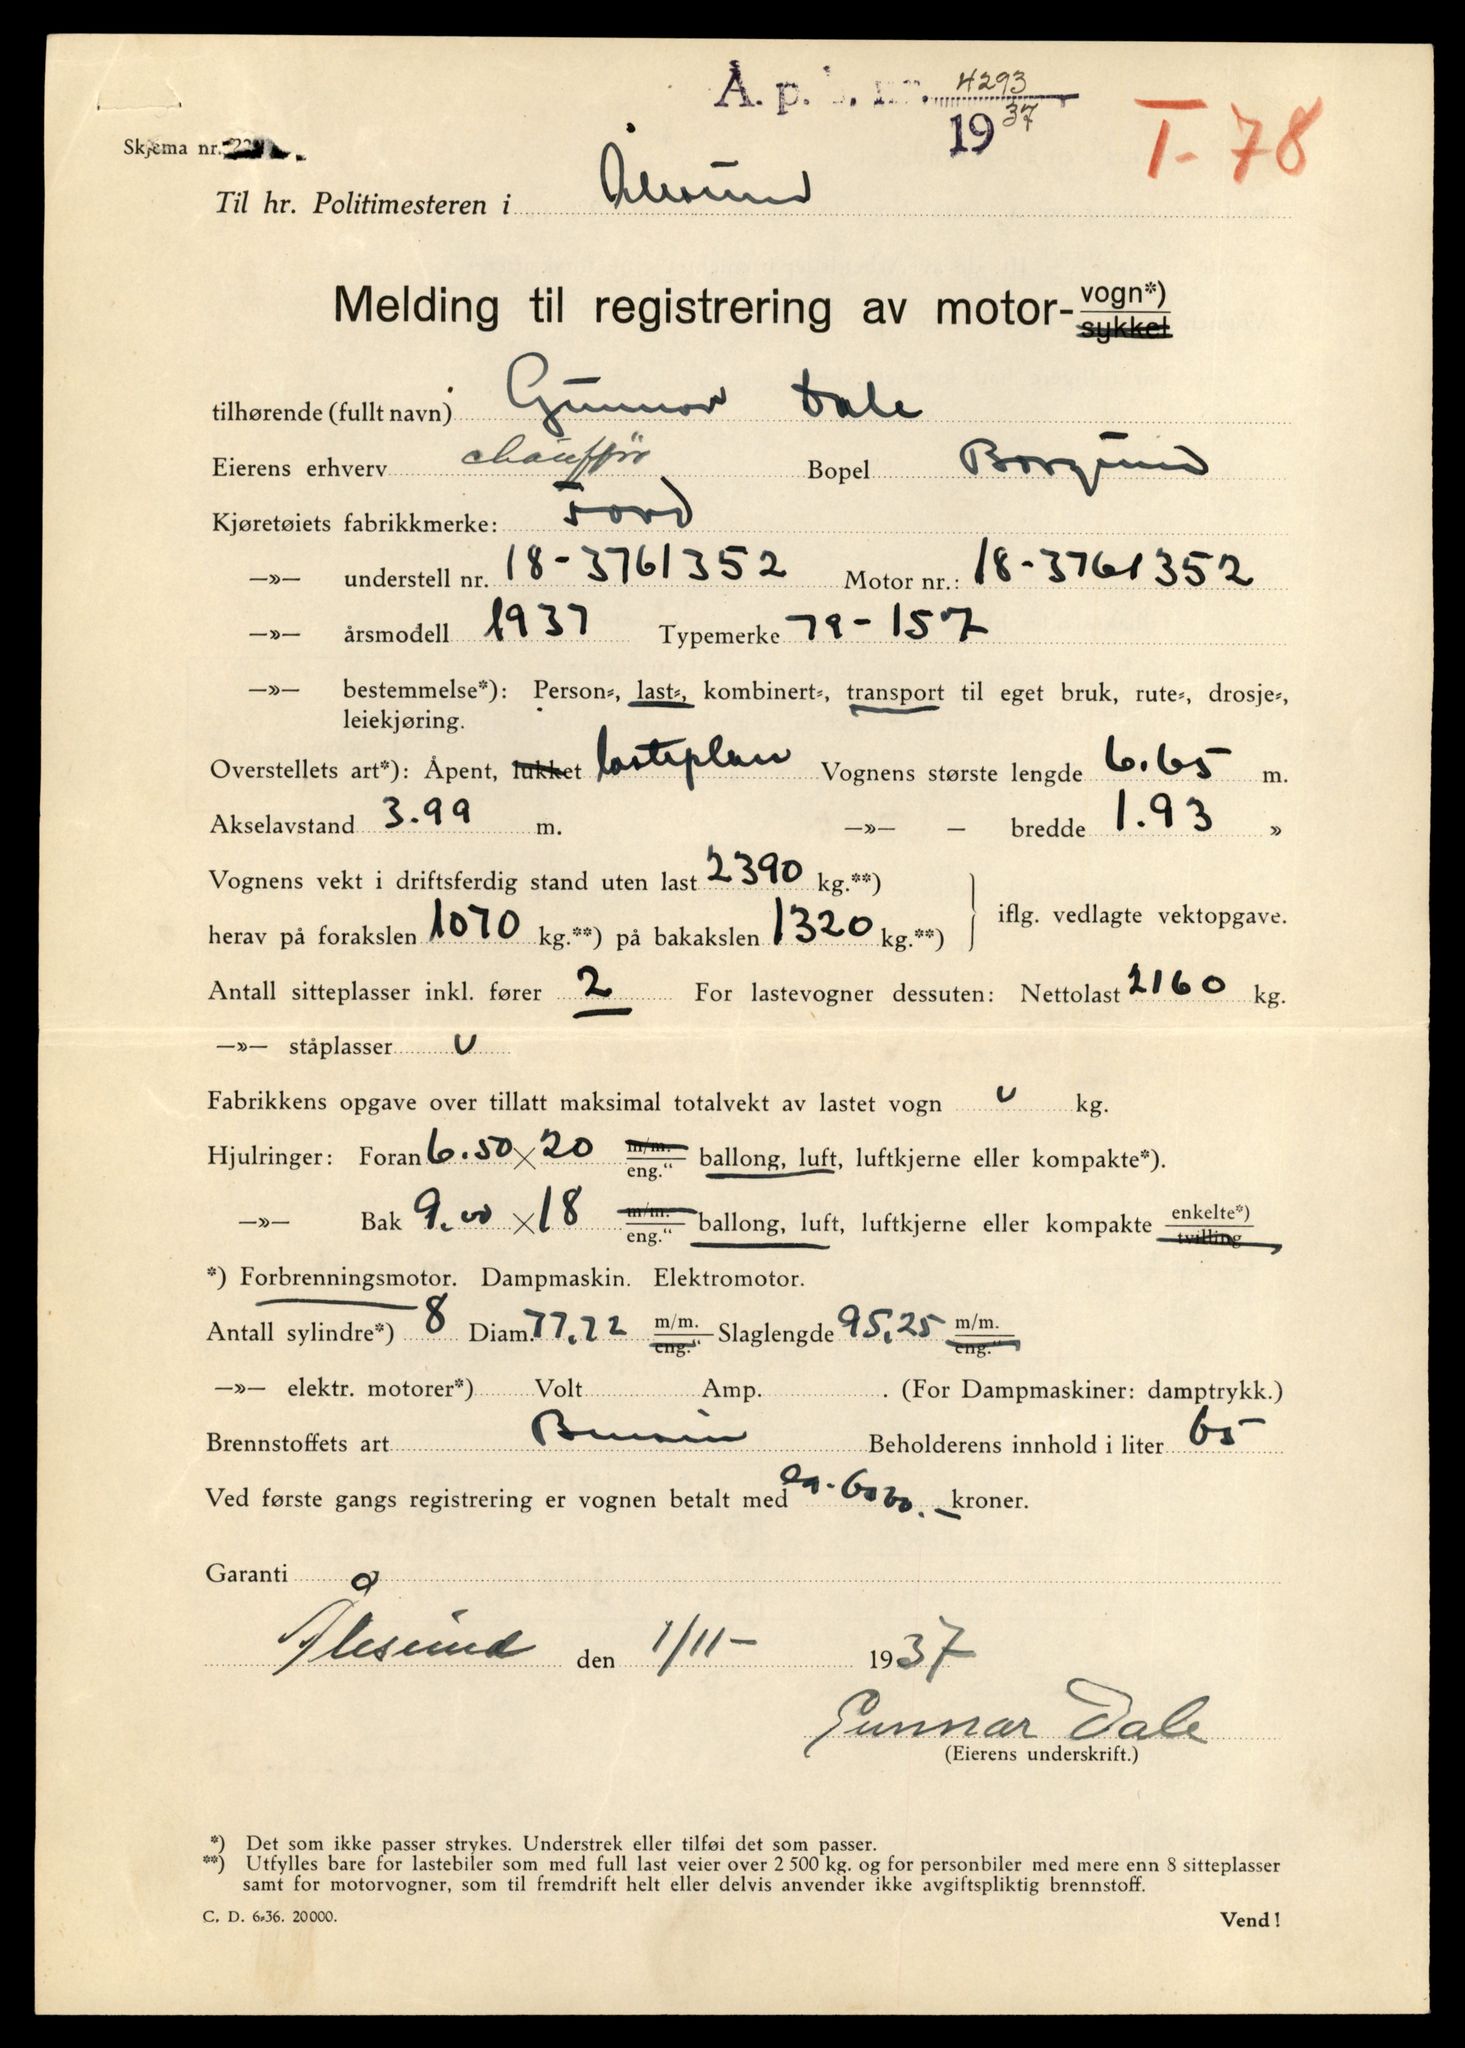 Å. p. k. nr. 4293
1937
T-78
Skjema nr.
Til hr. Politimesteren i Ålesund
Melding til registrering av motor- vogn*)
sykkel
tilhørende (fullt navn) Gunnar Dale
Eierens erhverv chauffør Bopel Borgund
Kjøretøiets fabrikkmerke: Ford
—»— understell nr. 18-3761352 Motor nr.: 18-3761352
—»— årsmodell 1937 Typemerke 79-157
—»— bestemmelse*): Person-, last-, kombinert-, transport til eget bruk, rute-, drosje-,
leiekjøring.
Overstellets art*): Åpent, lukket lasteplan Vognens største lengde 6.65 m.
Akselavstand 3.99 m. —»— — bredde 1.93 »
Vognens vekt i driftsferdig stand uten last 2390 kg.**)
herav på forakslen 1070 kg.**) på bakakslen 1320 kg.**) iflg. vedlagte vektopgave.
Antall sitteplasser inkl. fører 2 For lastevogner dessuten: Nettolast 2160 kg.
—»— ståplasser u
Fabrikkens opgave over tillatt maksimal totalvekt av lastet vogn u kg.
Hjulringer: Foran 6.50 × 20 m/m. eng.“ ballong, luft, luftkjerne eller kompakte*).
—»— Bak 9.00 × 18 m/m. eng.“ ballong, luft, luftkjerne eller kompakte enkelte*) tvilling
*) Forbrenningsmotor. Dampmaskin. Elektromotor.
Antall sylindre*) 8 Diam. 77.72 m/m. eng.“ Slaglengde 95.25 m/m. eng.“
—»— elektr. motorer*) Volt Amp. . (For Dampmaskiner: damptrykk.)
Brennstoffets art Bensin Beholderens innhold i liter 65
Ved første gangs registrering er vognen betalt med ca. 6000.— kroner.
Garanti
Ålesund den 1/11- 1937
Gunnar Dale
(Eierens underskrift.)
*) Det som ikke passer strykes. Understrek eller tilføi det som passer.
**) Utfylles bare for lastebiler som med full last veier over 2 500 kg. og for personbiler med mere enn 8 sitteplasser
samt for motorvogner, som til fremdrift helt eller delvis anvender ikke avgiftspliktig brennstoff.
C. D. 6-36. 20000. Vend!